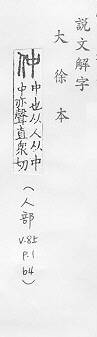 說文解字
大徐本
仲
中也从人从中
中亦聲直衆切
(人部
V.85
P.1
64)